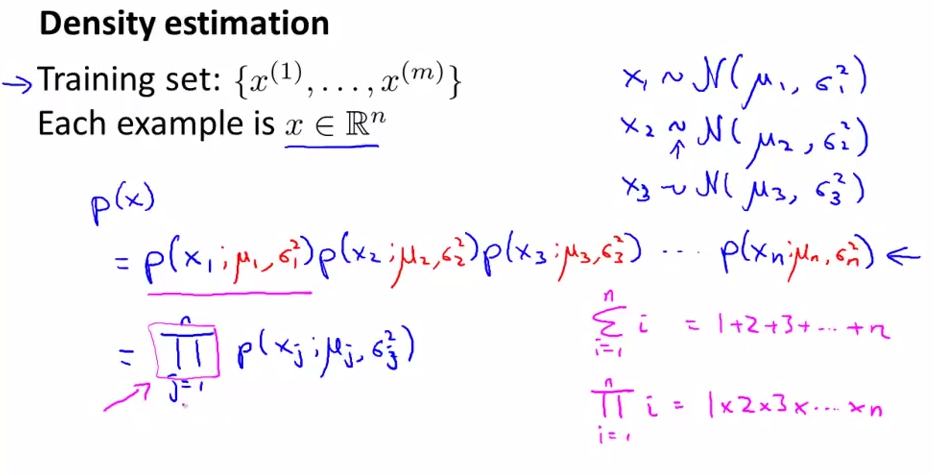 Density estimation
→ Training set: {x^(1), . . . , x^(m)}
Each example is x ∈ ℝ^n
x₁ ~ N(μ₁, σ₁²)
x₂ ~ N(μ₂, σ₂²)
↑
x₃ ~ N(μ₃, σ₃²)
p(x)
= p(x₁; μ₁, σ₁²) p(x₂; μ₂, σ₂²) p(x₃; μ₃, σ₃²) ... p(xₙ; μₙ, σₙ²) ←
= ∏_{j=1}^{n} p(xⱼ; μⱼ, σ₃²)
∑_{i=1}^{n} i = 1+2+3+...+n
∏_{i=1}^{n} i = 1×2×3×...×n